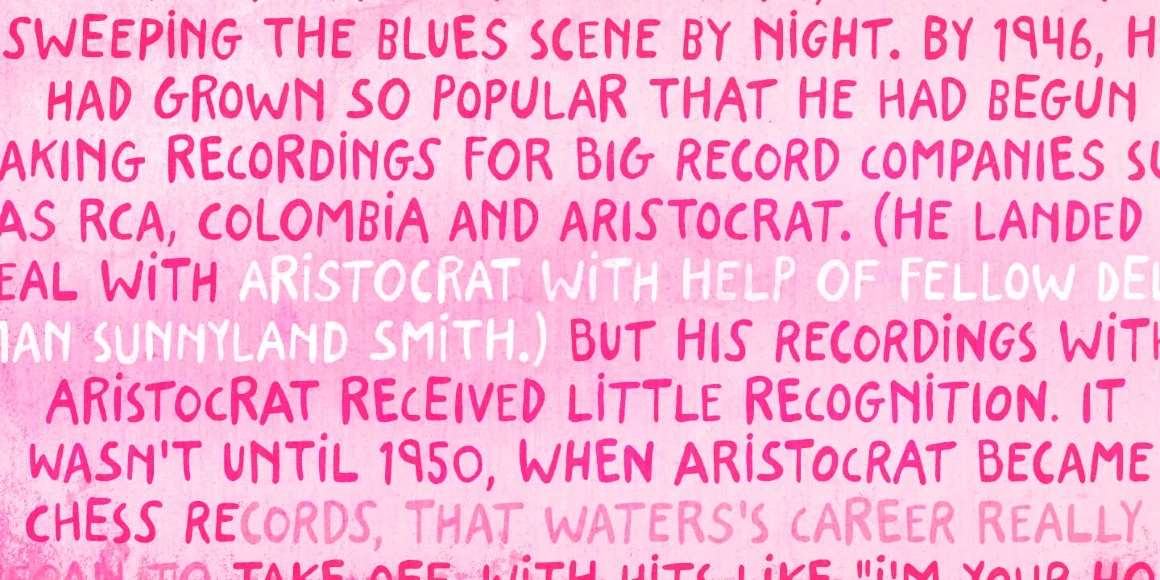 SWEEPING THE BLUES SCENE BY NIGHT. BY 1946, H
HAD GROWN SO POPULAR THAT HE HAD BEGUN
AKING RECORDINGS FOR BIG RECORD COMPANIES SU
AS RCA, COLOMBIA AND ARISTOCRAT. (HE LANDED
EAL WITH ARISTOCRAT WITH HELP OF FELLOW DEL
MAN SUNNYLAND SMITH.) BUT HIS RECORDINGS WITH
ARISTOCRAT RECEIVED LITTLE RECOGNITION. IT
WASN'T UNTIL 1950, WHEN ARISTOCRAT BECAME
CHESS RECORDS, THAT WATERS'S CAREER REALLY
TO TAKE OFF. WITH HITS LIKE "I'M YOUR HO